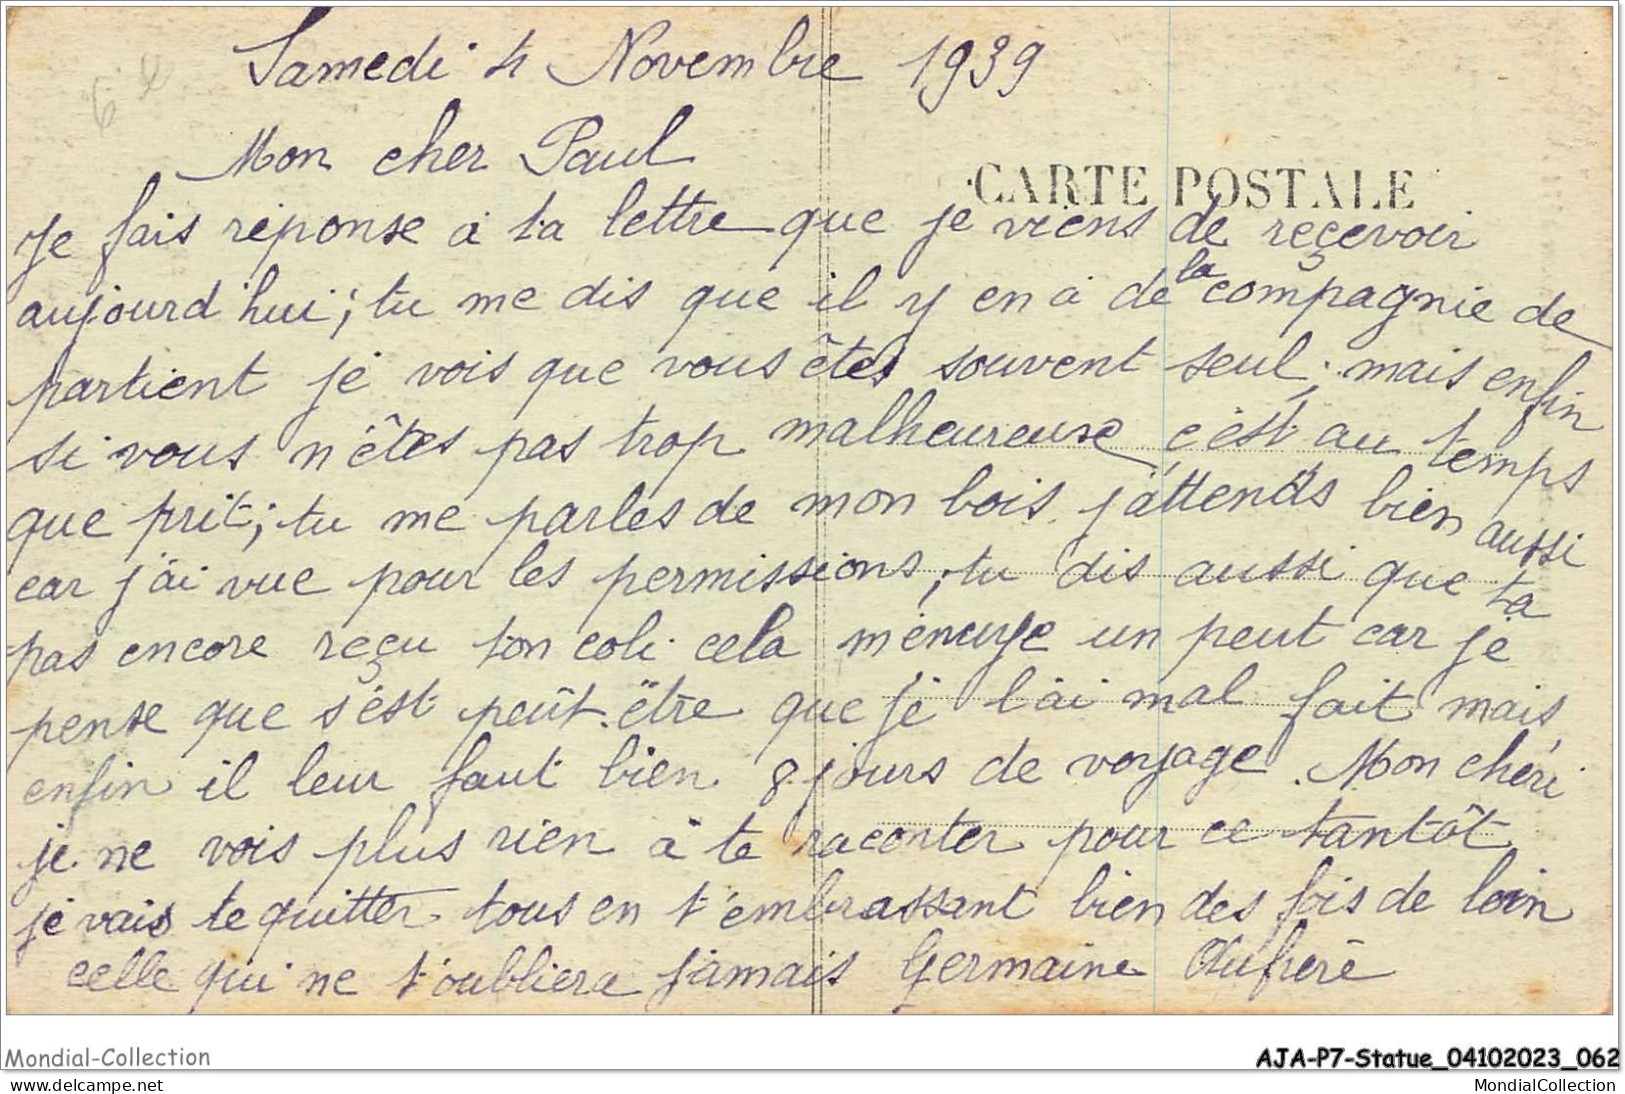 Samedi 4 Novembre 1939
Mon cher Paul
CARTE POSTALE
Je fais réponse a ta lettre que je viens de reçevoir
aujourd'hui; tu me dis que il y en à de la compagnie de
partient je vois que vous êtes souvent seul; mais enfin
si vous n'êtes pas trop malheureuse c'est au temps
que prit; tu me parles de mon bois j'attends bien aussi
car j'ai vue pour les permissions; tu dis aussi que ta
pas encore reçu ton coli cela m'ennuye un peut car je
pense que s'est peût-être que je l'ai mal fait mais
enfin il leur faut bien 8 jours de voyage. Mon chéri
je ne vois plus rien à te raconter pour ce tantôt
je vais te quitter tous en t'embrassant bien des fois de loin
celle qui ne t'oubliera jamais Germaine Aufrère
Mondial-Collection
AJA-P7-Statue_04102023_062
www.delcampe.net
MondialCollection